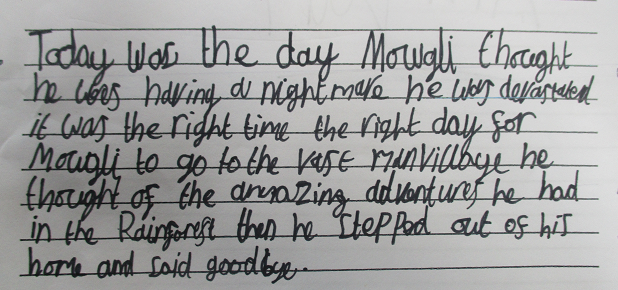 Today was the day Mowgli thought
he was having a nightmare he was devastated
it was the right time the right day for
Mowgli to go to the vast manvillage he
thought of the amazing adventures he had
in the Rainforest then he stepped out of his
home and said goodbye.